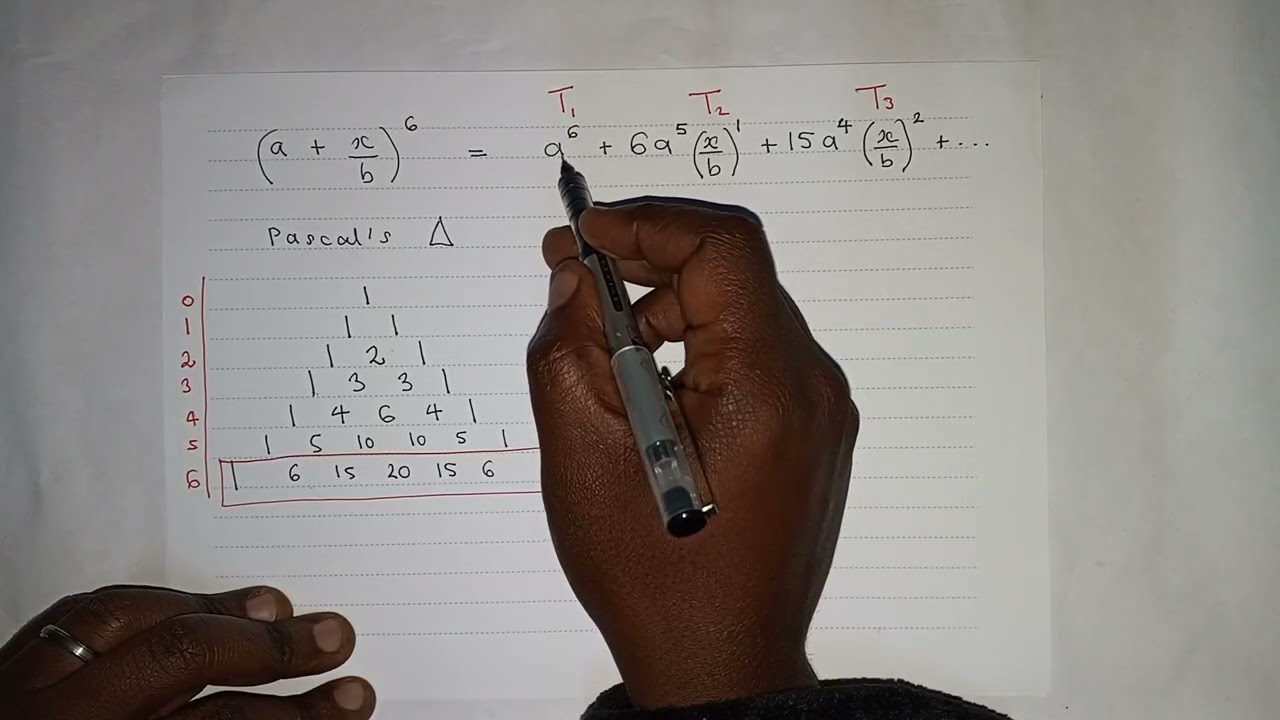 T₁ T₂ T₃
(a + x/b)⁶ = a⁶ + 6a⁵(x/b)¹ + 15a⁴(x/b)² + ...
Pascal's △
0 1
1 1 1
2 1 2 1
3 1 3 3 1
4 1 4 6 4 1
5 1 5 10 10 5 1
6 1 6 15 20 15 6